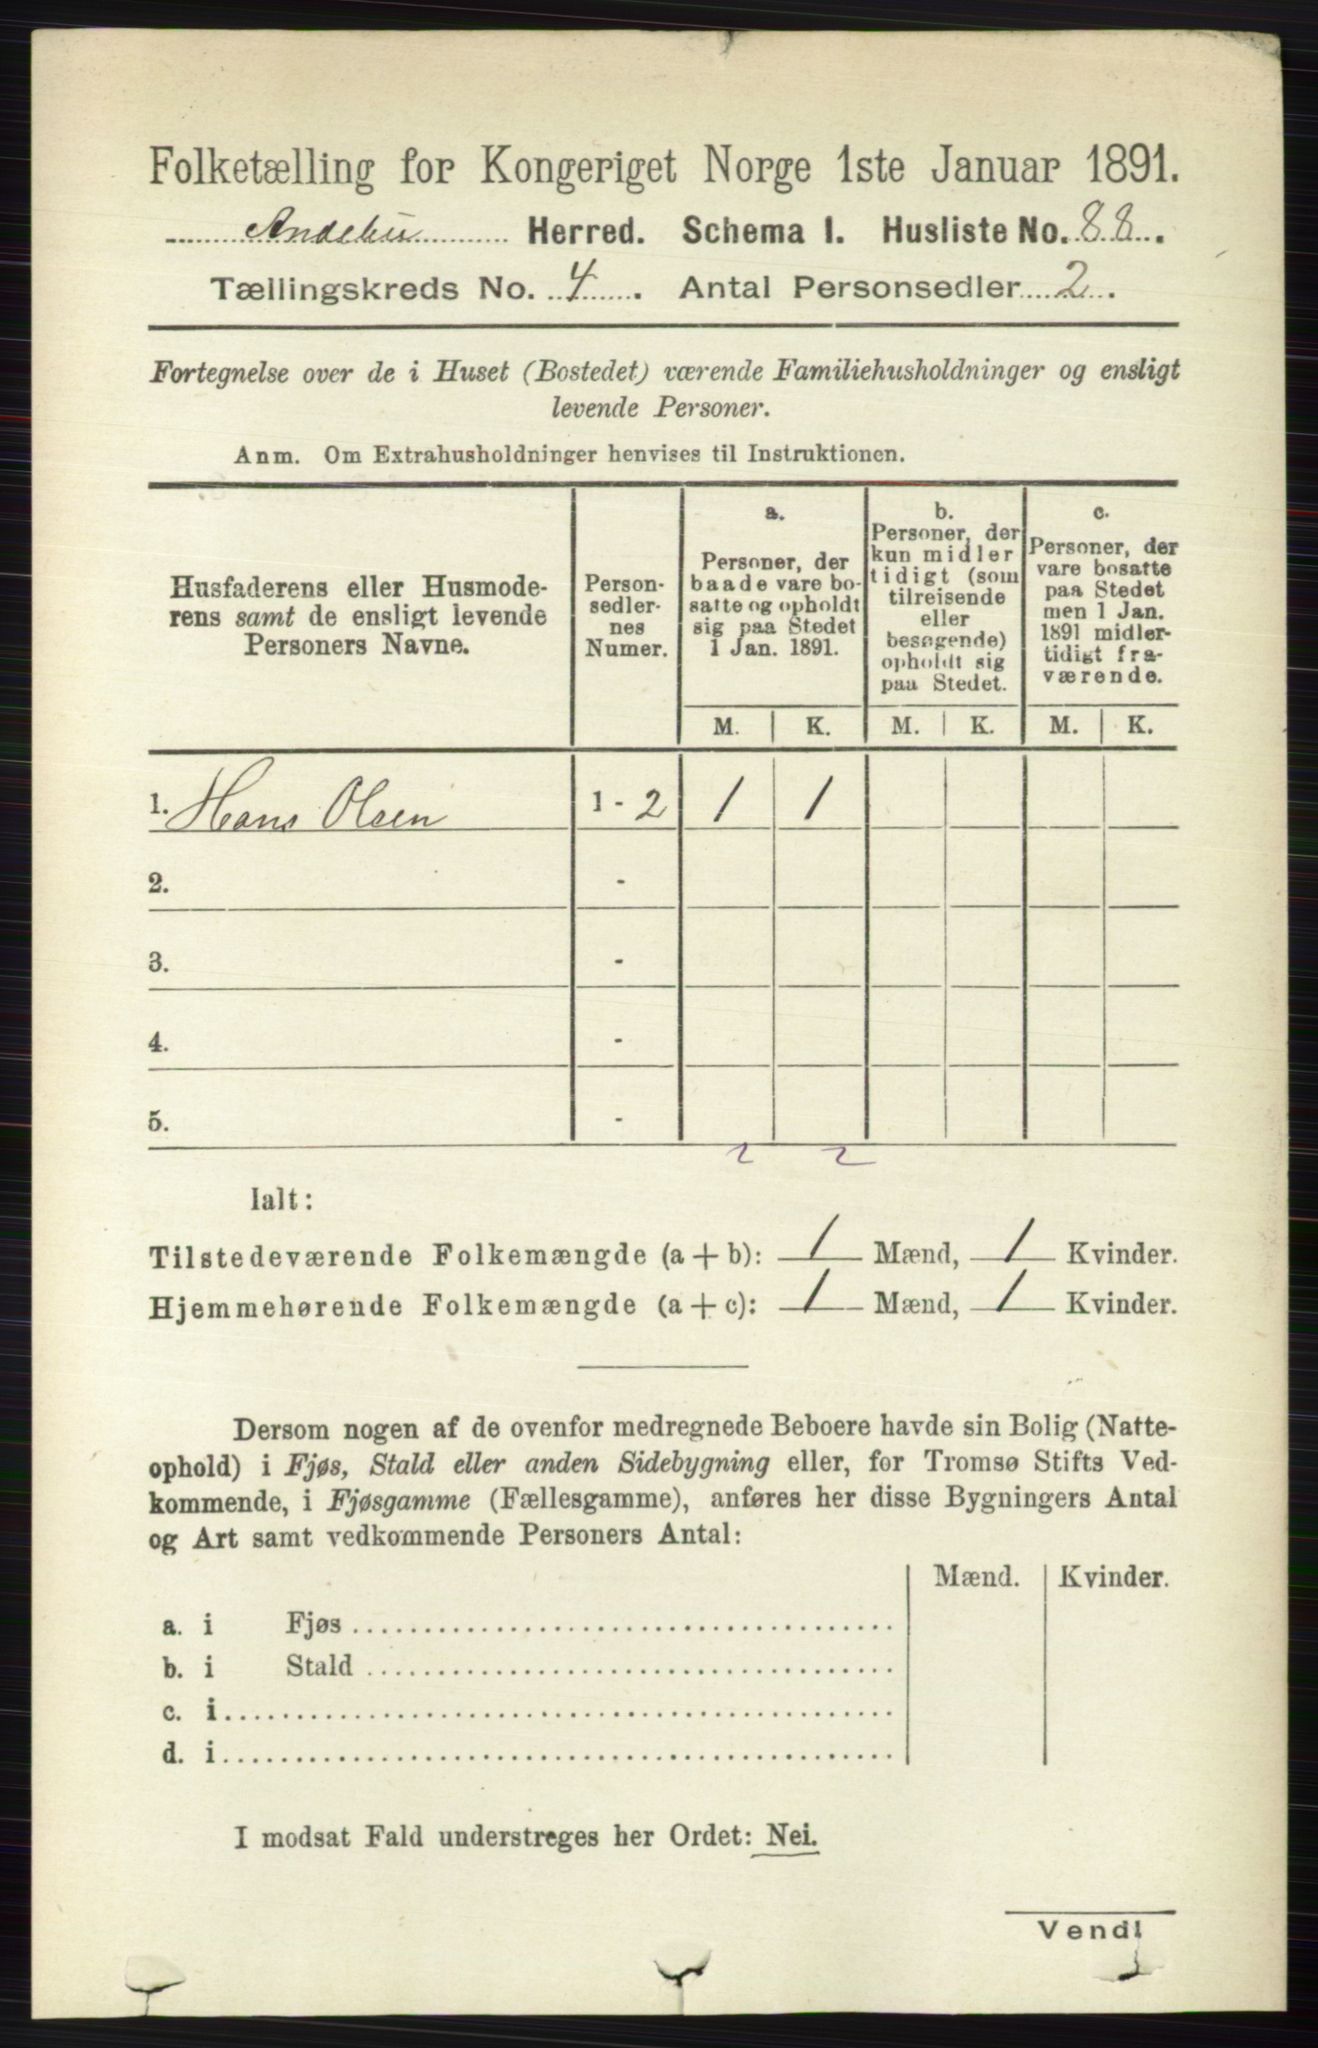 Folketælling for Kongeriget Norge 1ste Januar 1891.
Andebu Herred. Schema I. Husliste No. 88.
Tællingskreds No. 4. Antal Personsedler 2.
Fortegnelse over de i Huset (Bostedet) værende Familiehusholdninger og ensligt
levende Personer.
Anm. Om Extrahusholdninger henvises til Instruktionen.
Husfaderens eller Husmode-
rens samt de ensligt levende
Personers Navne.
Person-
sedler-
nes
Numer.
a.
Personer, der
baade vare bo-
satte og opholdt
sig paa Stedet
1 Jan. 1891.
b.
Personer, der
kun midler
tidigt (som
tilreisende
eller
besøgende)
opholdt sig
paa Stedet.
c.
Personer, der
vare bosatte
paa Stedet
men 1 Jan.
1891 midler-
tidigt fra-
værende.
M. K. M. K. M. K.
1. Hans Olsen 1 - 2 1 1
2. -
3. -
4. -
5. -
2 2
Ialt:
Tilstedeværende Folkemængde (a + b): 1 Mænd, 1 Kvinder.
Hjemmehørende Folkemængde (a + c): 1 Mænd, 1 Kvinder.
Dersom nogen af de ovenfor medregnede Beboere havde sin Bolig (Natte-
ophold) i Fjøs, Stald eller anden Sidebygning eller, for Tromsø Stifts Ved-
kommende, i Fjøsgamme (Fællesgamme), anføres her disse Bygningers Antal
og Art samt vedkommende Personers Antal:
Mænd. Kvinder.
a. i Fjøs
b. i Stald
c. i
d. i
I modsat Fald understreges her Ordet: Nei.
Vend!